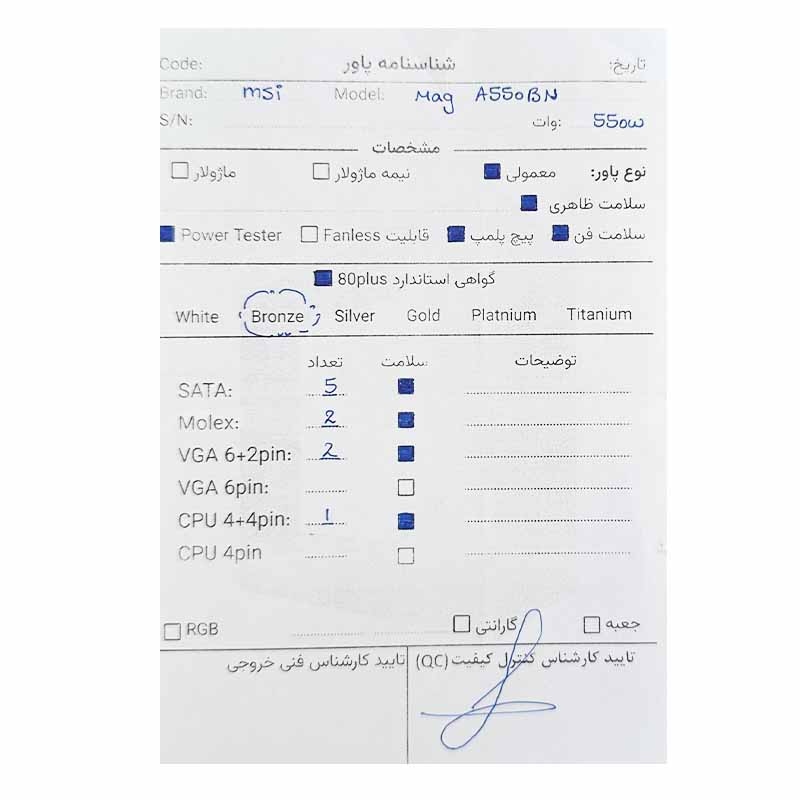 Code: شناسنامه پاور تاریخ:
Brand: msi Model: Mag A550BN
S/N: وات: 550w
مشخصات
نوع پاور: معمولی نیمه ماژولار ماژولار
سلامت ظاهری
سلامت فن پیچ پلمپ قابلیت Fanless Power Tester
گواهی استاندارد 80plus
White Bronze Silver Gold Platnium Titanium
تعداد سلامت: توضیحات
SATA: 5
Molex: 2
VGA 6+2pin: 2
VGA 6pin:
CPU 4+4pin: 1
CPU 4pin
RGB گارانتی جعبه
تایید کارشناس کنترل کیفیت (QC) تایید کارشناس فنی خروجی